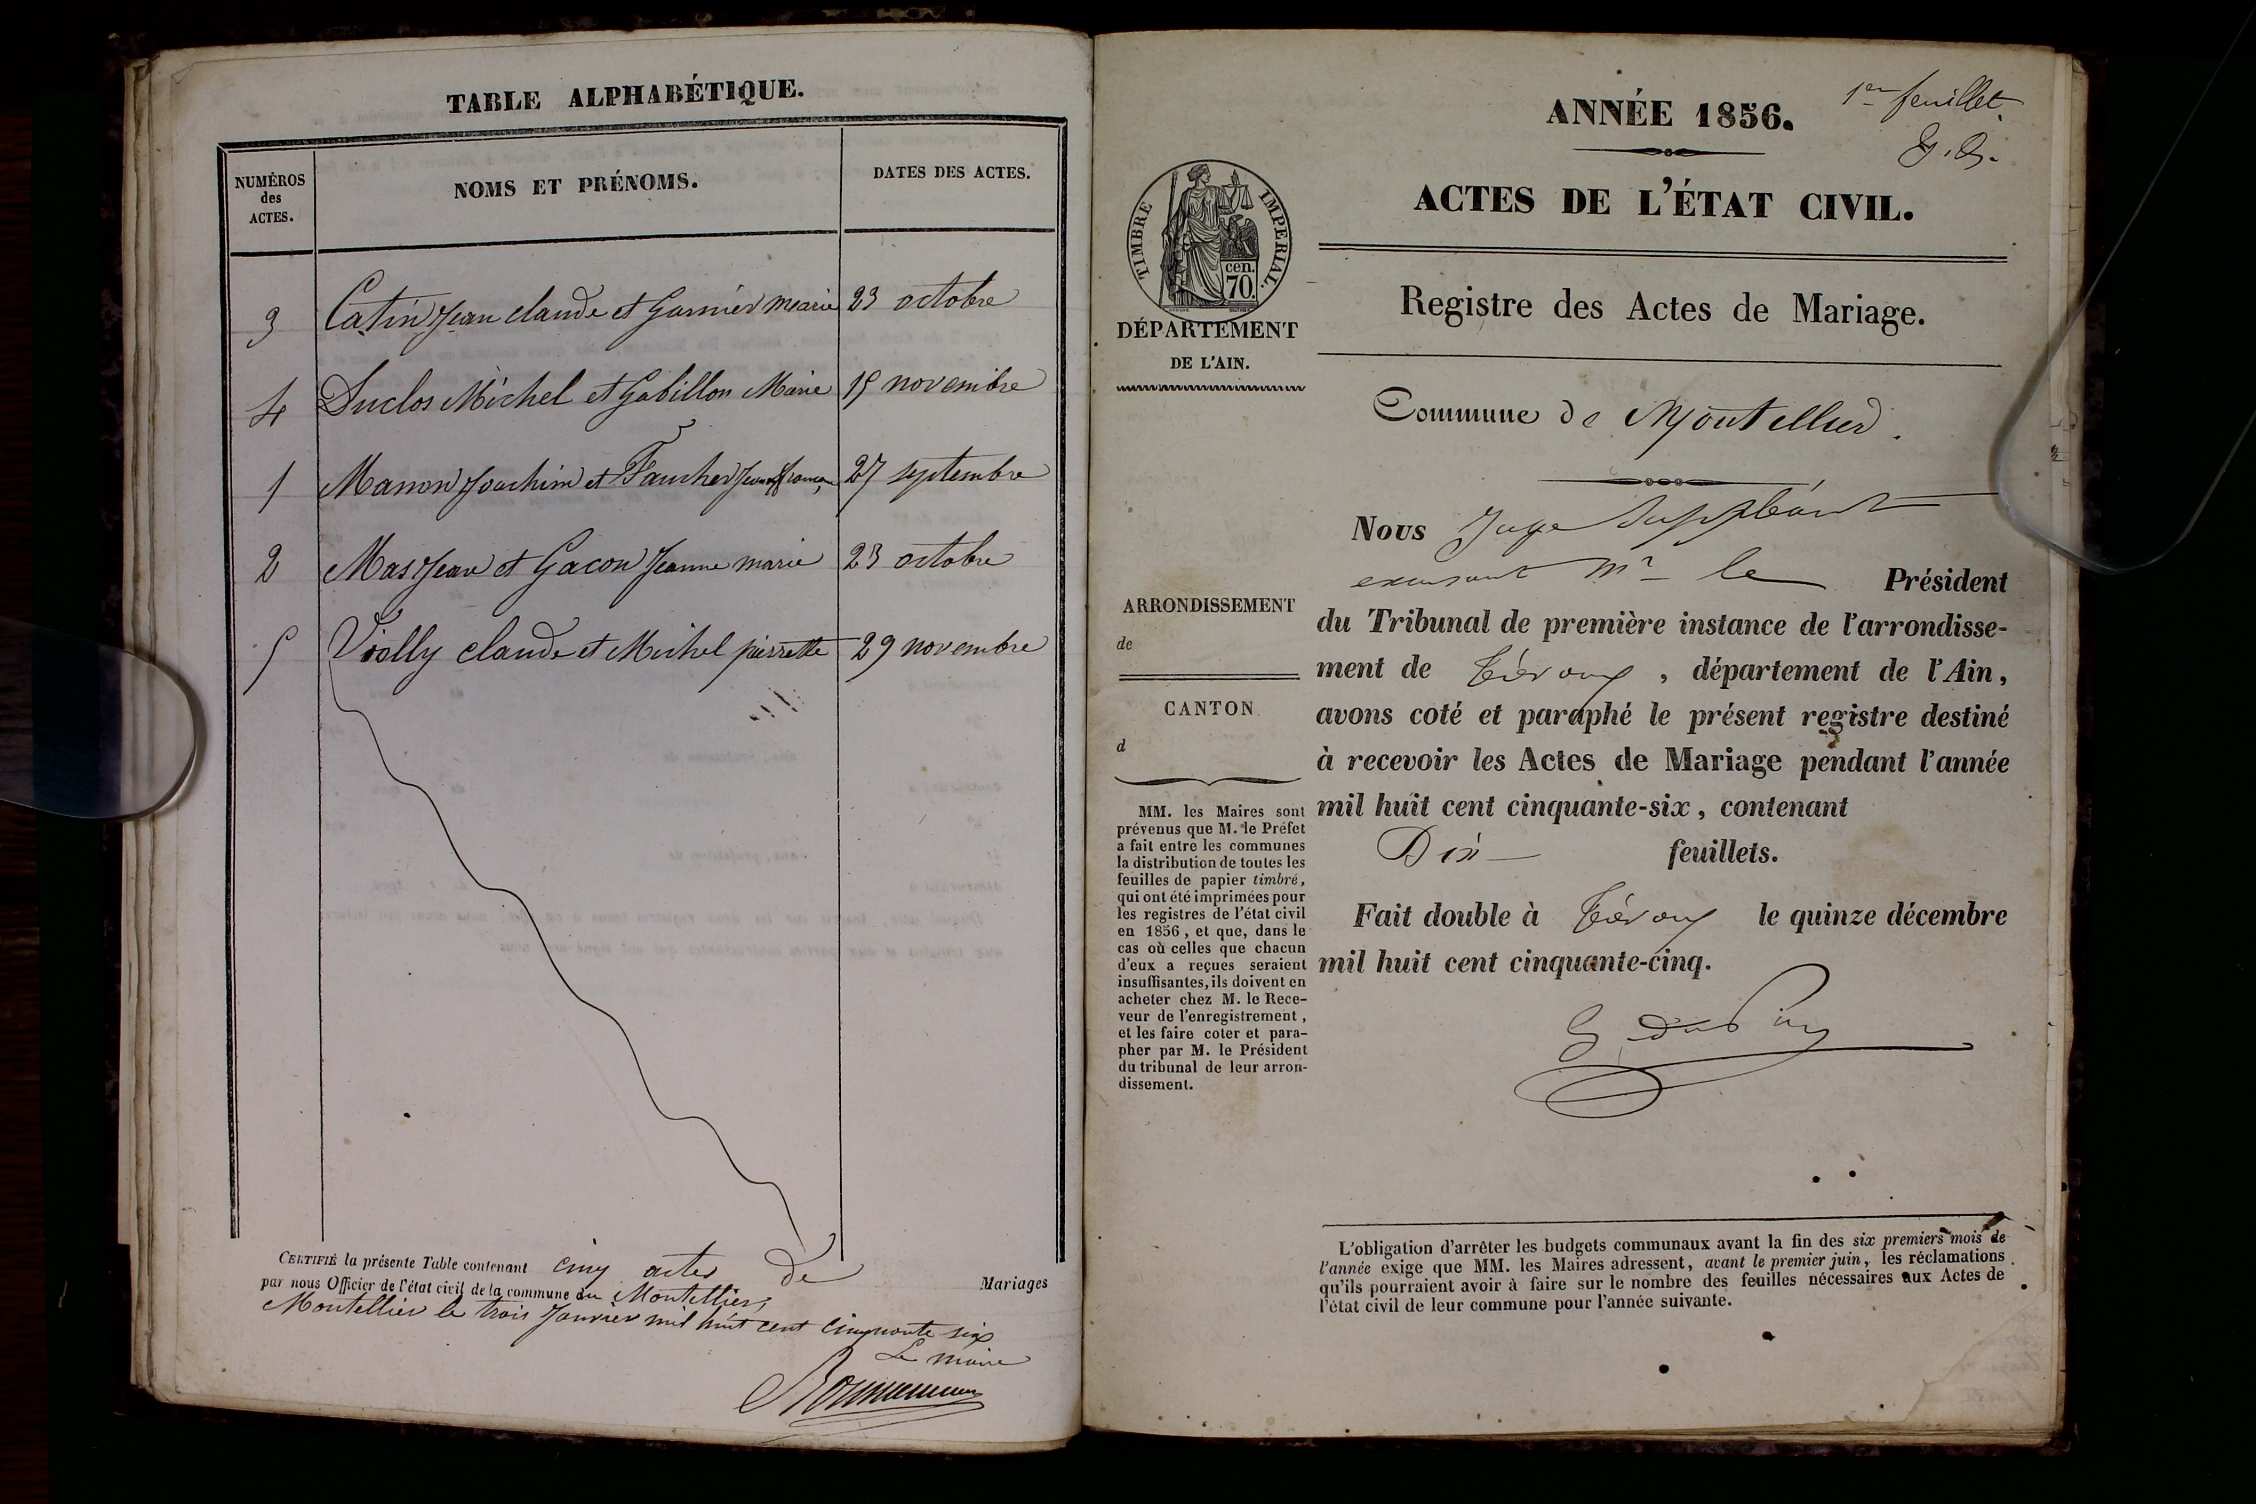 TABLE ALPHABÉTIQUE.
NUMÉROS
des
ACTES.
NOMS ET PRÉNOMS.
DATES DES ACTES.
3 Catin Jean claude et Garnier marie 23 octobre
4 Duclos Michel et Gabillon Marie 15 novembre
1 Manon Joachim et Faucher 27 septembre
2 Mas Jean et Gacon Jeanne marie 23 octobre
5 Violly claude et Michel pierrette 29 novembre
CERTIFIÉ la présente Table contenant cinq actes de
Mariages
par nous Officier de l'état civil de la commune du Montellier,
Montellier le trois Janvier mil huit cent cinquante six
Le maire
1er feuillet
ANNÉE 1856.
ACTES DE L'ÉTAT CIVIL.
TIMBRE IMPERIAL.
cen.
70.
DÉPARTEMENT
DE L'AIN.
Registre des Actes de Mariage.
Commune de Montellier.
Nous Juge Suppléant
Mr le Président
du Tribunal de première instance de l'arrondisse-
ment de Trévoux, département de l'Ain,
avons coté et paraphé le présent registre destiné
à recevoir les Actes de Mariage pendant l'année
mil huit cent cinquante-six, contenant
Dix feuillets.
Fait double à Trévoux le quinze décembre
mil huit cent cinquante-cinq.
ARRONDISSEMENT
de
CANTON
d
MM. les Maires sont
prévenus que M. le Préfet
a fait entre les communes
la distribution de toutes les
feuilles de papier timbré,
qui ont été imprimées pour
les registres de l'état civil
en 1856, et que, dans le
cas où celles que chacun
d'eux a reçues seraient
insuffisantes, ils doivent en
acheter chez M. le Rece-
veur de l'enregistrement,
et les faire coter et para-
pher par M. le Président
du tribunal de leur arron-
dissement.
L'obligation d'arrêter les budgets communaux avant la fin des six premiers mois de
l'année exige que MM. les Maires adressent, avant le premier juin, les réclamations
qu'ils pourraient avoir à faire sur le nombre des feuilles nécessaires aux Actes de
l'état civil de leur commune pour l'année suivante.